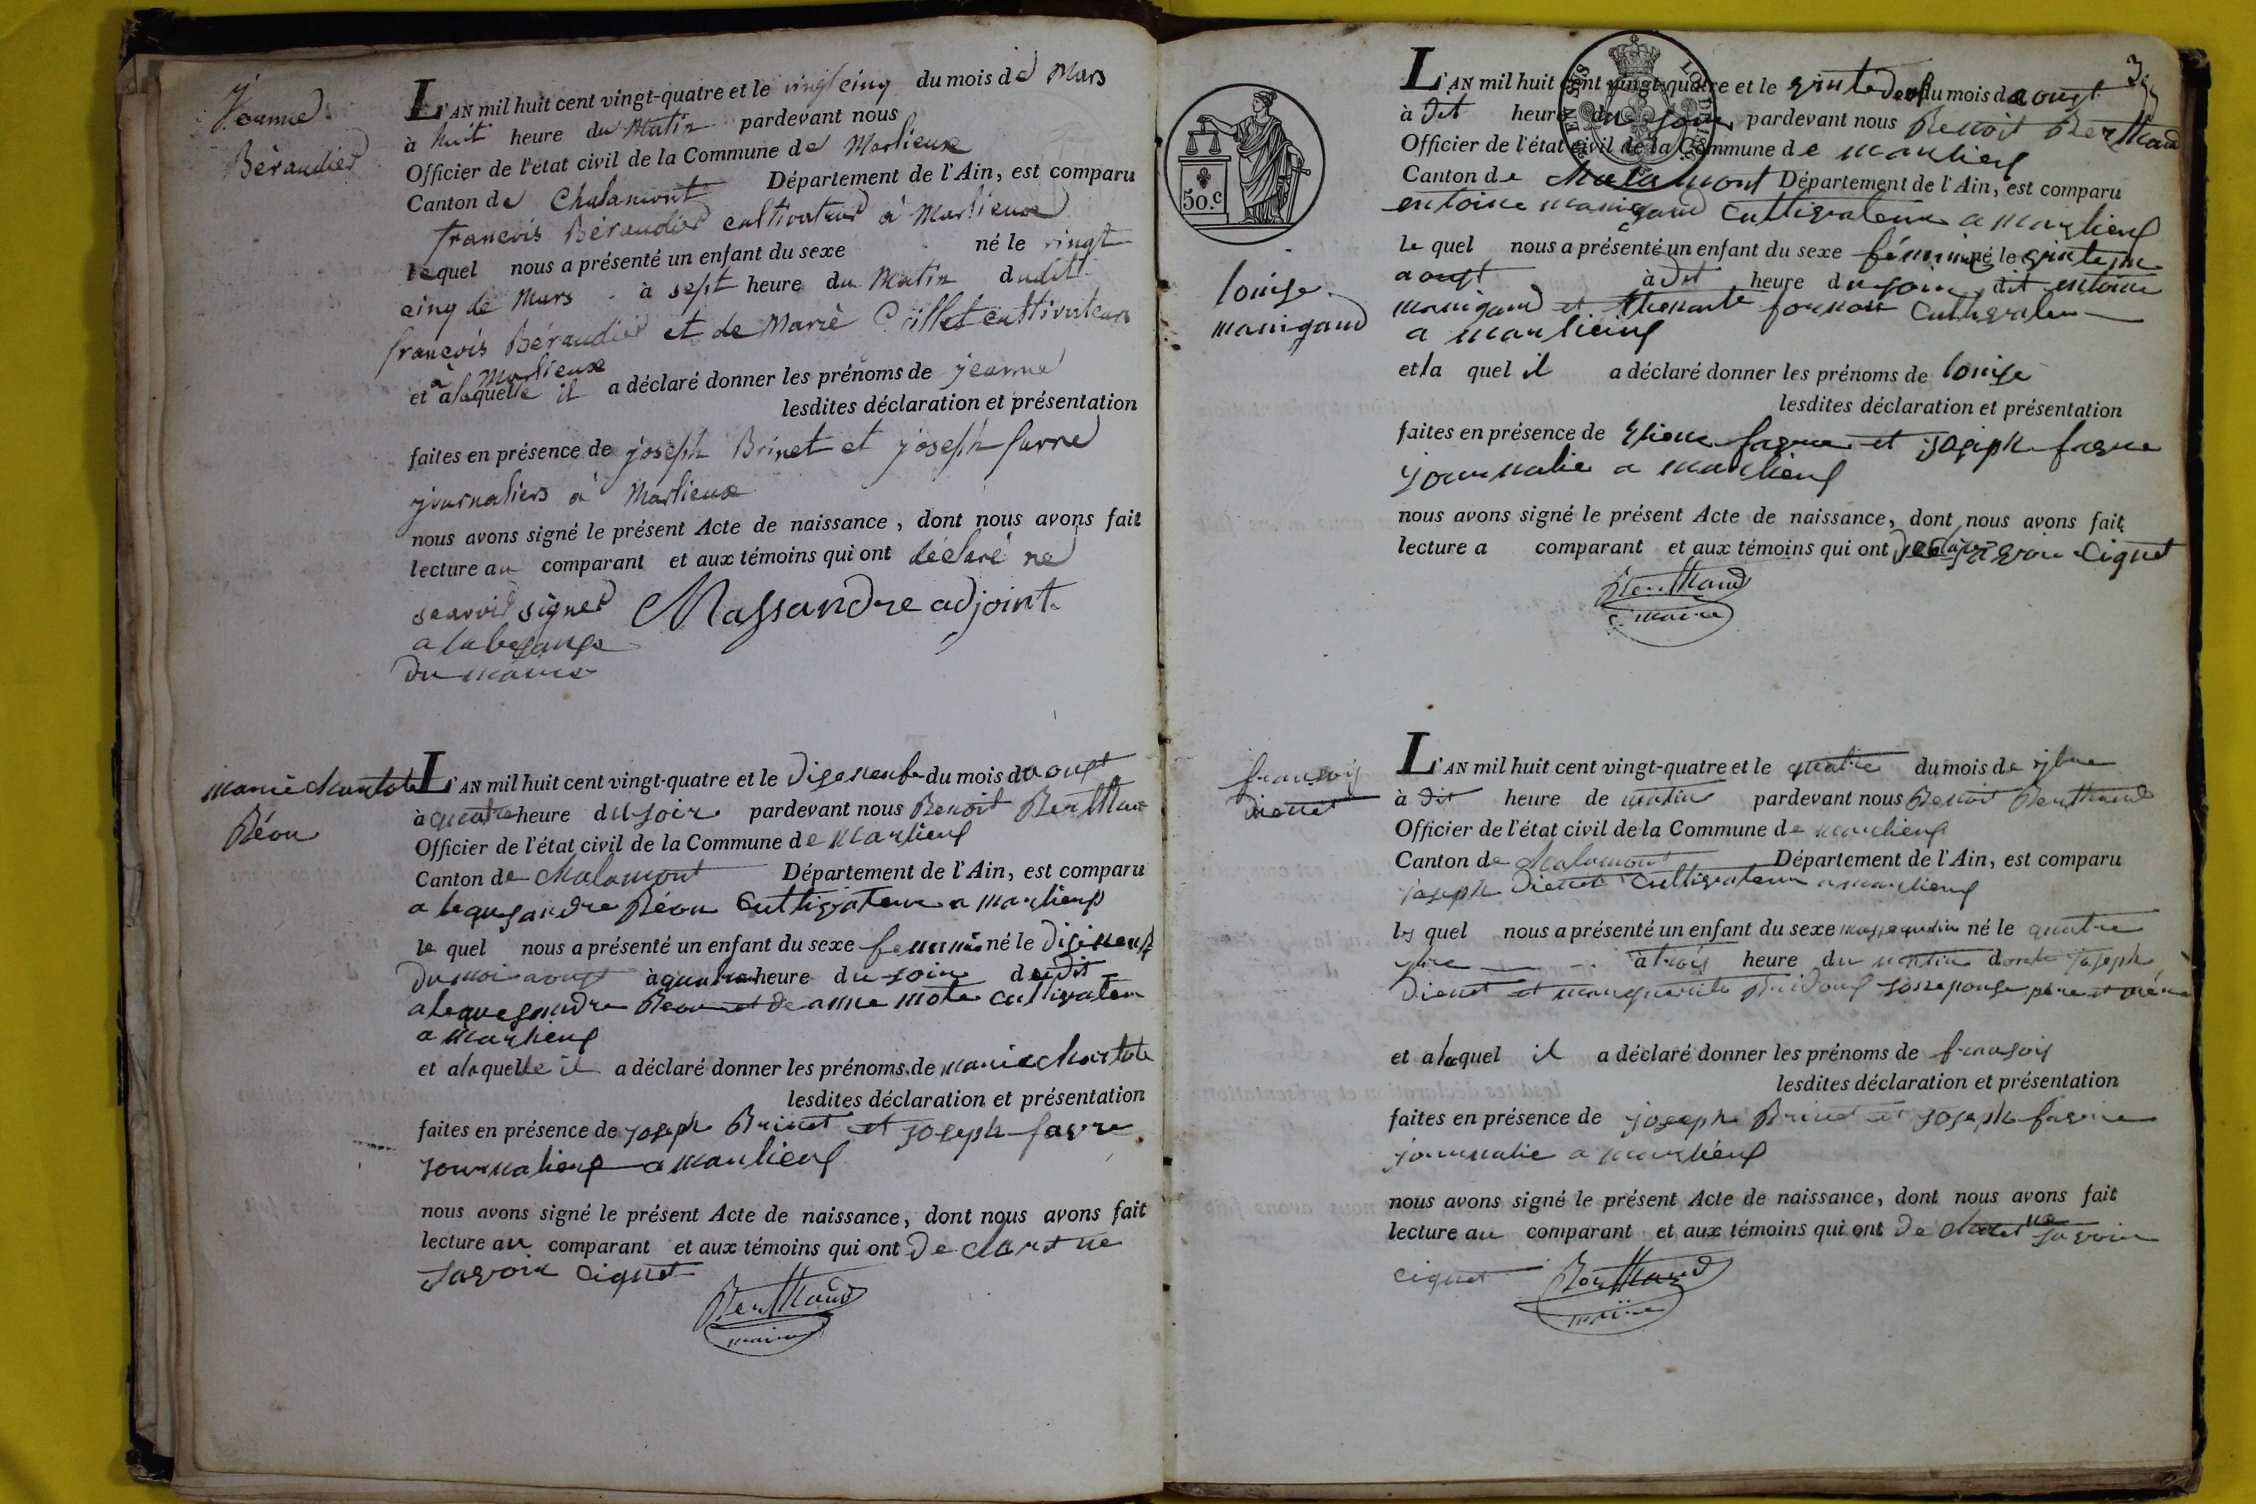 Jeanne
Béraudier
L'AN mil huit cent vingt-quatre et le vingt cinq du mois de Mars
à huit heure du Matin pardevant nous
Officier de l'état civil de la Commune de Marlieux
Canton de Chalamont Département de l'Ain, est comparu
françois Béraudier cultivateur à Marlieux
lequel nous a présenté un enfant du sexe né le vingt
cinq de Mars à sept heure du Matin dudit
françois Béraudier et de Marie cultivateurs
à Marlieux
et a laquelle il a déclaré donner les prénoms de jeanne
lesdites déclaration et présentation
faites en présence de joseph Brinet et joseph favre
journaliers à Marlieux
nous avons signé le présent Acte de naissance, dont nous avons fait
lecture au comparant et aux témoins qui ont déclaré ne
savoir signer Massandre adjoint
a labesange
du maire
marie
Réon
L'AN mil huit cent vingt-quatre et le diseneufe du mois d aoust
à quatre heure du soir pardevant nous Benoit Berthaud
Officier de l'état civil de la Commune de marlieux
Canton de Chalamont Département de l'Ain, est comparu
Réon cultivateur a marlieux
le quel nous a présenté un enfant du sexe feminin né le
du moi aoust à quatre heure du soir dudit
Réon et de anne mote cultivateur
a marlieux
et a laquelle il a déclaré donner les prénoms de marie
lesdites déclaration et présentation
faites en présence de joseph Brinet et joseph favre
a marlieux
nous avons signé le présent Acte de naissance, dont nous avons fait
lecture au comparant et aux témoins qui ont de clare ne
savoir cigner
Berthaud
maire
3
50.c
louise
manigand
L'AN mil huit cent vingt-quatre et le du mois d aoust
à dit heure du soir pardevant nous Benoit Berthaud
Officier de l'état civil de la Commune de marlieux
Canton de Chalamont Département de l'Ain, est comparu
entoine manigand cultivateur a marlieux
le quel nous a présenté un enfant du sexe féminin né le
aoust à dit heure du soir dit entoine
manigand et cultivateur
a marlieux
et la quel il a déclaré donner les prénoms de louise
lesdites déclaration et présentation
faites en présence de favre et joseph favre
journalie a marlieux
nous avons signé le présent Acte de naissance, dont nous avons fait
lecture a comparant et aux témoins qui ont savoir cigner
Berthaud
maire
fransois
Dienet
L'AN mil huit cent vingt-quatre et le quatre du mois de
à dit heure de matin pardevant nous Benoit Berthaud
Officier de l'état civil de la Commune de marlieux
Canton de Chalamont Département de l'Ain, est comparu
joseph Dienet cultivateur a marlieux
le quel nous a présenté un enfant du sexe né le quatre
à trois heure du matin joseph
Dienet et pere et mére
et a laquel il a déclaré donner les prénoms de fransois
lesdites déclaration et présentation
faites en présence de joseph Brinet et joseph favre
journalie a marlieux
nous avons signé le présent Acte de naissance, dont nous avons fait
lecture au comparant et aux témoins qui ont de claret ne savoir
cigner Berthaud
maire